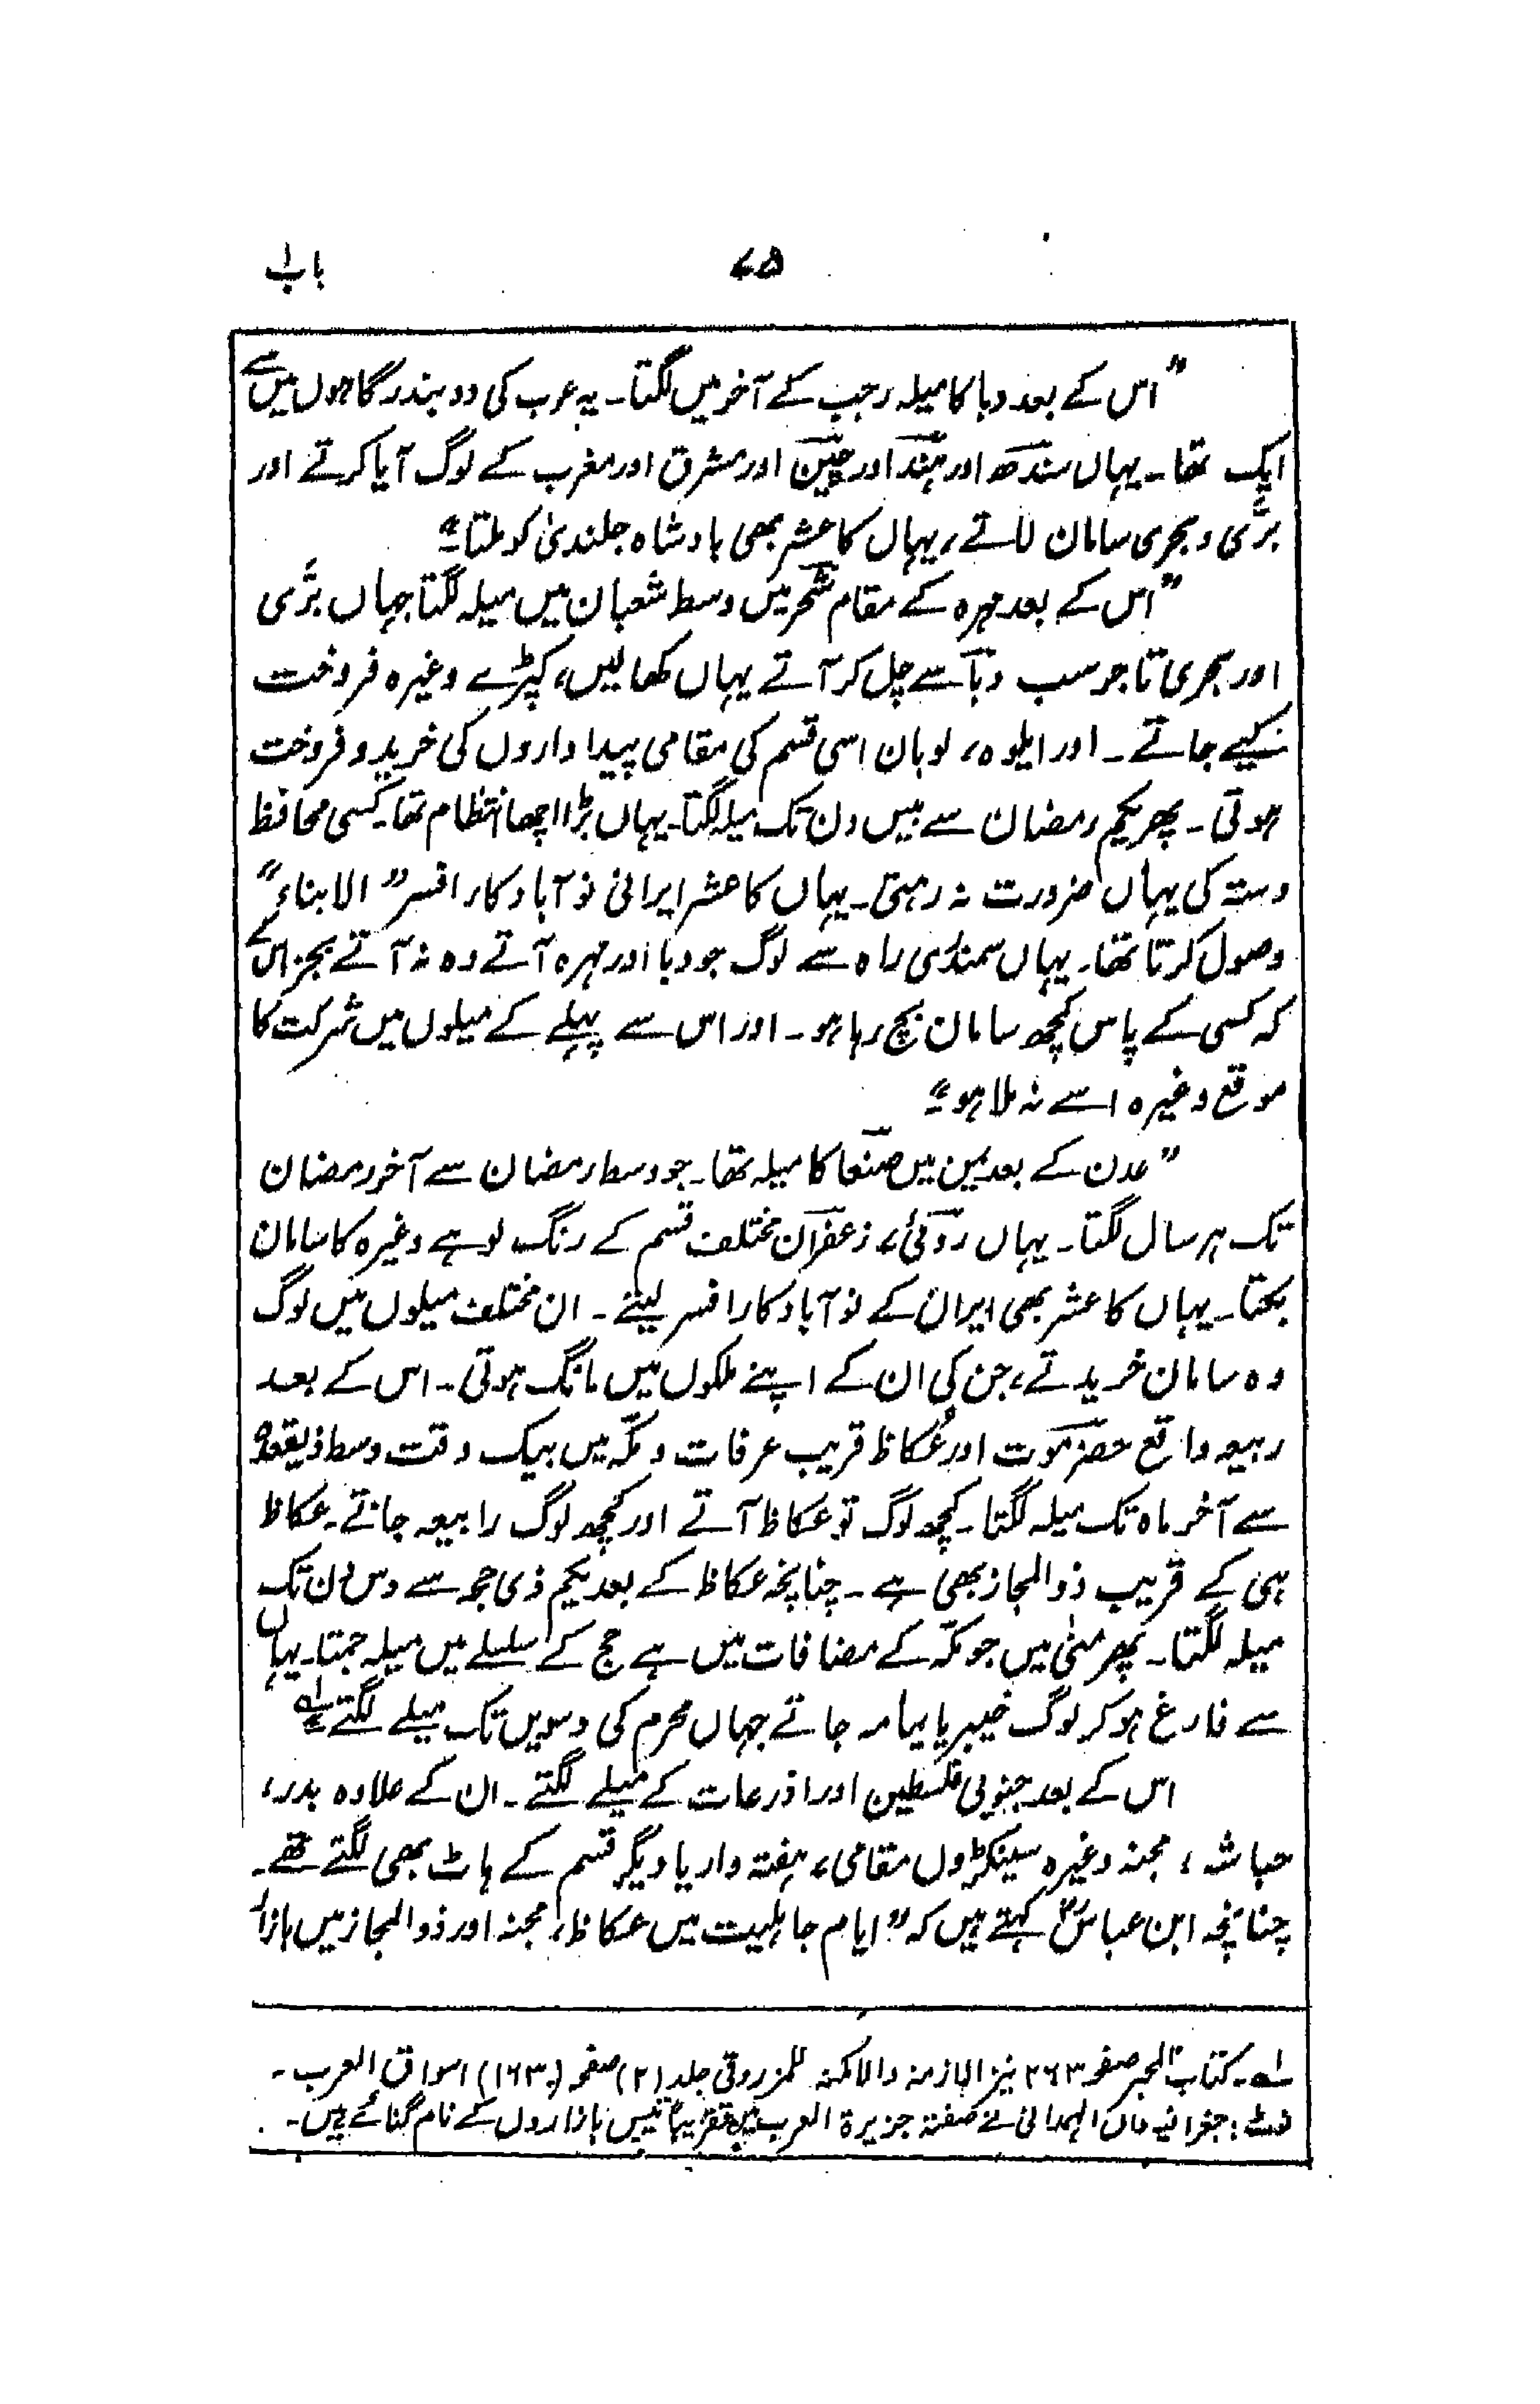 باب ۱
۷۵
”اس کے بعد دبا کا میلہ رجب کے آخر میں لگتا۔ یہ عرب کی دو بندرگاہوں میں سے
ایک تھا۔ یہاں سندھ اور ہند اور چین اور مشرق اور مغرب کے لوگ آیا کرتے اور
برّی و بحری سامان لاتے، یہاں کا عشر بھی بادشاہ جلندیٰ کو ملتا“۔
”اس کے بعد مہرہ کے مقام شحر میں وسط شعبان میں میلہ لگتا جہاں برّی
اور بحری تاجر سب دبا سے چل کر آتے یہاں کھالیں، کپڑے وغیرہ فروخت
کیے جاتے۔ اور ایلوہ، لوبان اسی قسم کی مقامی پیداواروں کی خرید و فروخت
ہوتی۔ پھر یکم رمضان سے بیس دن تک میلہ لگتا۔ یہاں بڑا اچھا انتظام تھا۔ کسی محافظ
دستہ کی یہاں ضرورت نہ رہتی۔ یہاں کا عشر ایرانی نو آبادکار افسر ”الابناء“
وصول کرتا تھا۔ یہاں سمندری راہ سے لوگ جو دبا اور مہرہ آتے وہ نہ آتے بجز اس کے
کہ کسی کے پاس کچھ سامان بچ رہا ہو۔ اور اس سے پہلے کے میلوں میں شرکت کا
موقع وغیرہ اسے نہ ملا ہو“۔
”عدن کے بعد یمن میں صنعا کا میلہ تھا۔ جو وسط رمضان سے آخر رمضان
تک ہر سال لگتا۔ یہاں روئی، زعفران مختلف قسم کے رنگ لوہے وغیرہ کا سامان
بکتا۔ یہاں کا عشر بھی ایران کے نو آبادکار افسر لیتے۔ ان مختلف میلوں میں لوگ
وہ سامان خریدتے، جن کی ان کے اپنے ملکوں میں مانگ ہوتی۔ اس کے بعد
ربیعہ واقع حضرموت اور عُکاظ قریب عرفات و مکّہ میں بیک وقت وسط ذیقعدہ
سے آخر ماہ تک میلہ لگتا۔ کچھ لوگ تو عکاظ آتے اور کچھ لوگ رابیعہ جاتے۔ عکاظ
ہی کے قریب ذوالمجاز بھی ہے۔ چنانچہ عکاظ کے بعد یکم ذی حجہ سے دس دن تک
میلہ لگتا۔ پھر منیٰ میں جو مکّہ کے مضافات میں ہے حج کے سلسلے میں میلہ جمتا۔ یہاں
سے فارغ ہو کر لوگ خیبر یا یمامہ جاتے جہاں محرم کی دسویں تک میلے لگتے“۱ـ
اس کے بعد جنوبی فلسطین اور اذرعات کے میلے لگتے۔ ان کے علاوہ بدر،
حباشہ، مجنہ وغیرہ سینکڑوں مقامی، ہفتہ وار یا دیگر قسم کے ہاٹ بھی لگتے تھے۔
چنانچہ ابن عباسؓ کہتے ہیں کہ ”ایام جاہلیت میں عکاظ، مجنہ اور ذوالمجاز میں بازار
۱ـ۔ کتاب المحبر صفحہ ۲۶۳ نیز الازمنہ والامکنہ للمرزوقی جلد (۲) صفحہ (۱۶۳) اسواق العرب۔
نوٹ: جغرافیہ داں الہمدانی نے صفۃ جزیرۃ العرب میں تقریباً تیس بازاروں کے نام گنائے ہیں۔